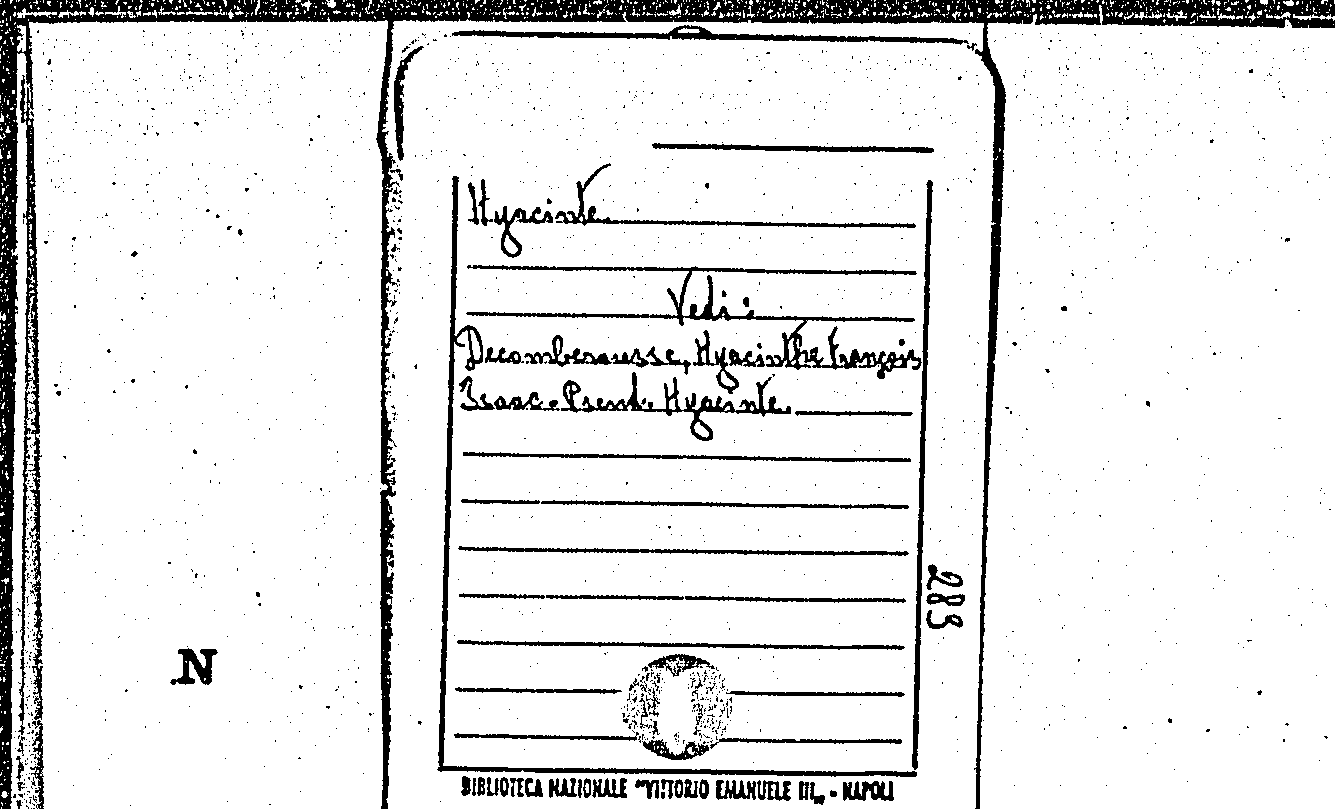 Hyacinte
Vedi:
Decomberousse, Hyacinthe François
Isaac. Pseud. Hyacinte.
283
N
BIBLIOTECA NAZIONALE "VITTORIO EMANUELE III„ - NAPOLI